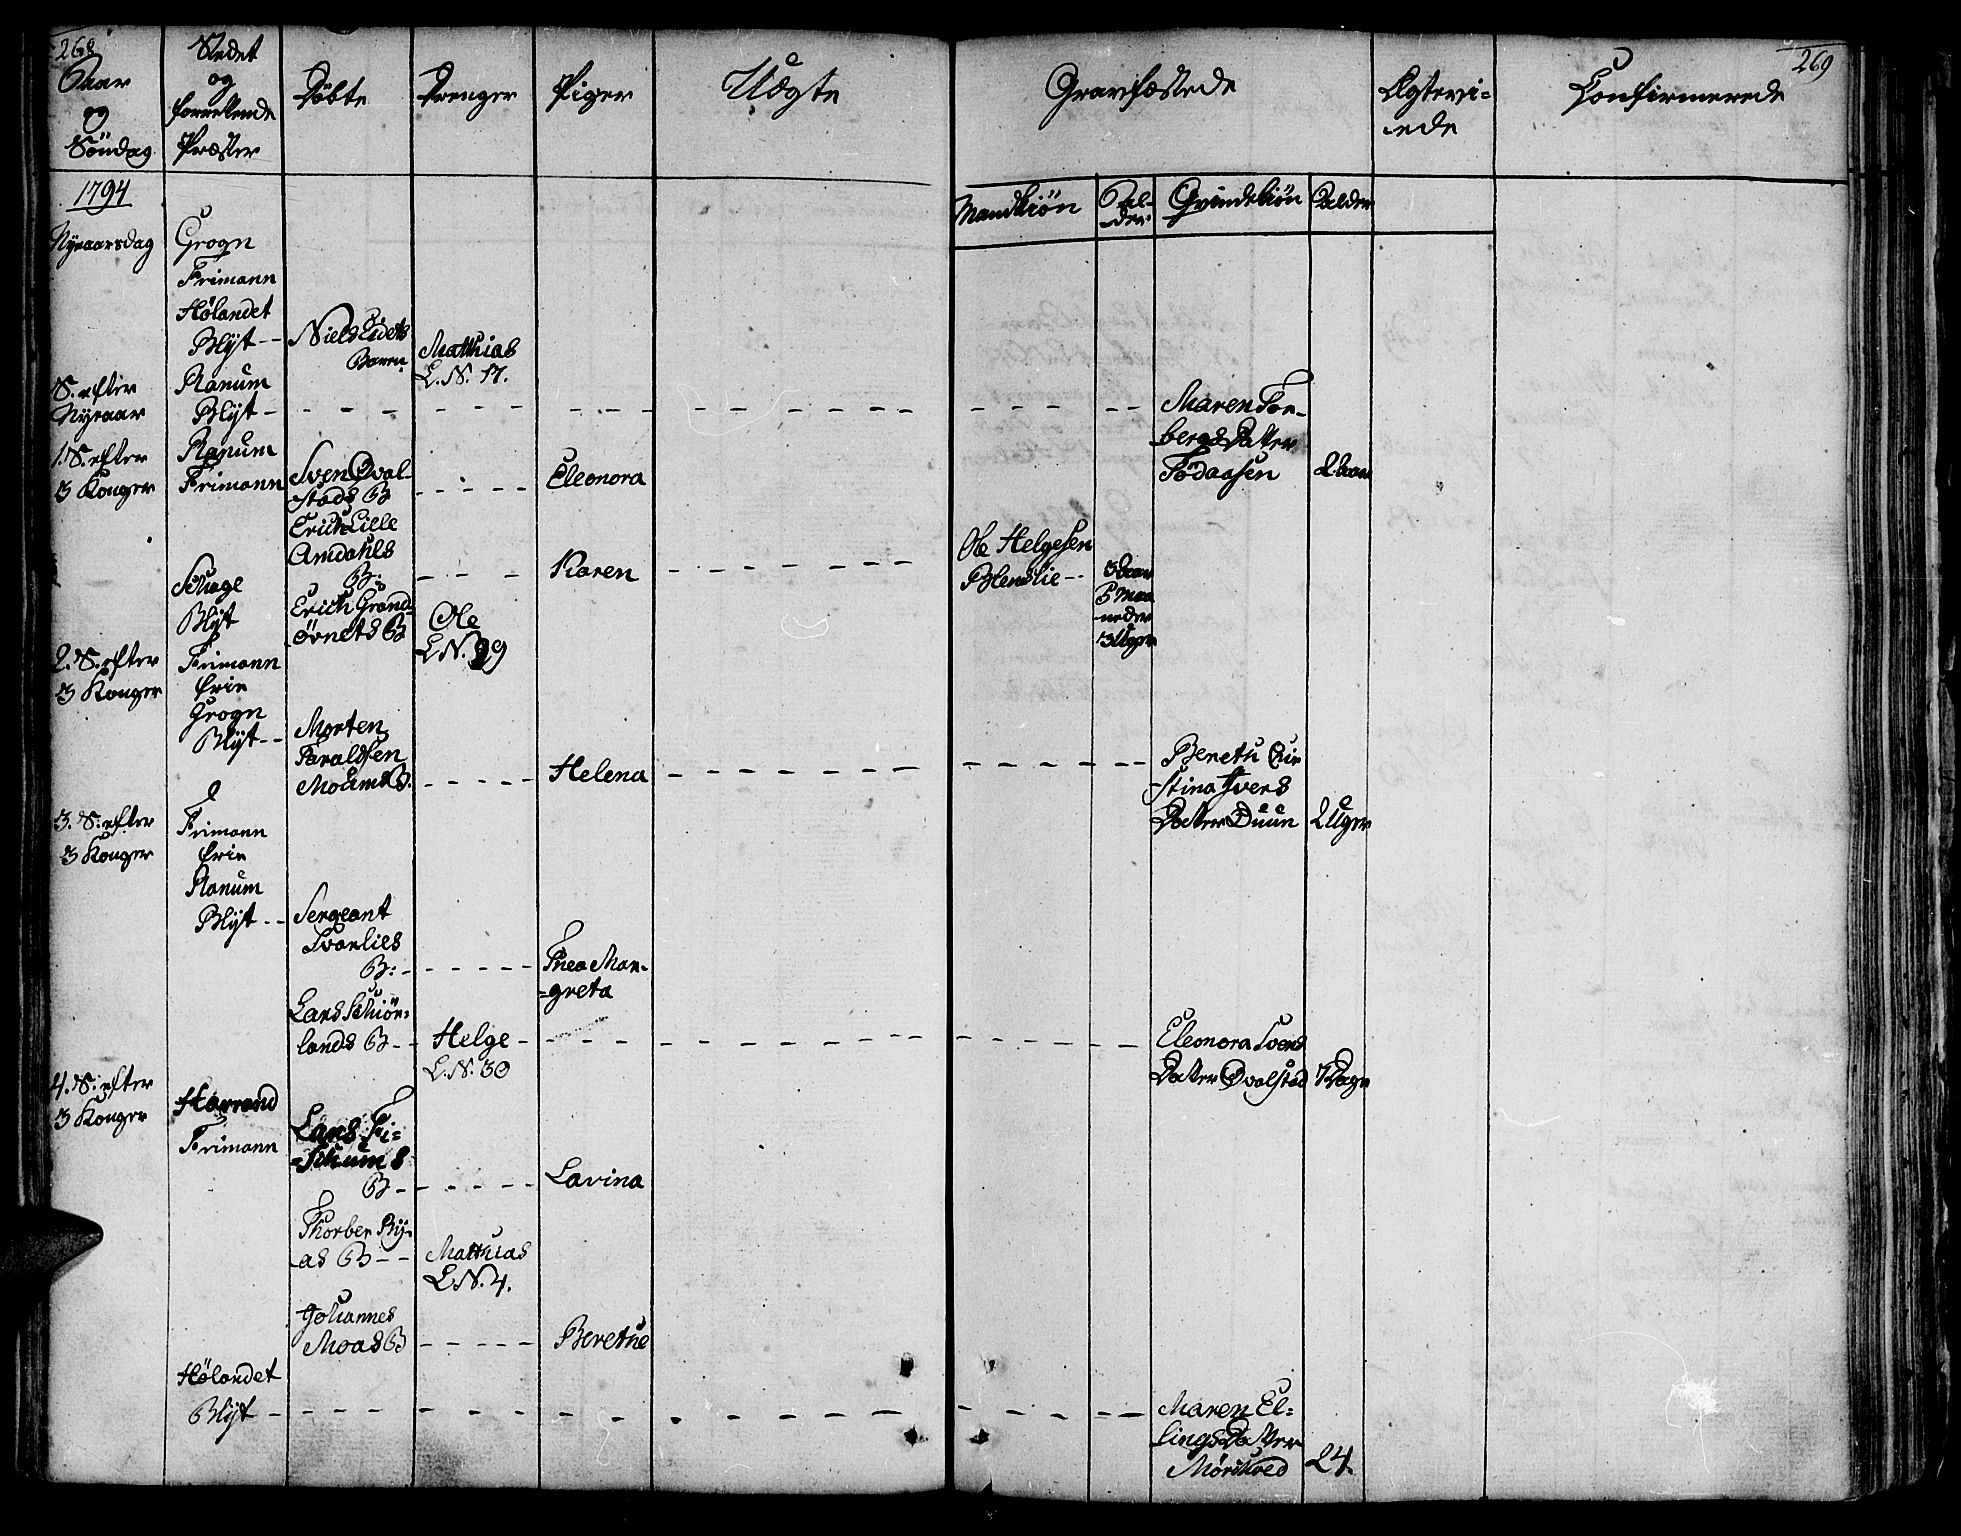 268
Aar
og
Söndag
Stedet
og
forrettende
Præster
Döbte
Drenger
Piger
Uægte
269
Gravfæstede
Ægtevi=
-ede
Confirmerede
Mandkiön
Al-
der
Qvindekiön
Alder
1794
Nyeaarsdag
Grogn
Frimann
Hölandet
Blÿt--
Niels Eidets
Baren
Matthias
L. N. 17.
S. efter
Nyeaar
Ranum
Blÿt-
Maren Tor-
bergsDatter
Födaasen
2 Aar
1. S. efter
3 Konger
Ranum
Frimann
Sven Qval-
stads B
Eleonora
Erich Lille
Amdahls
B:
Karen
Ole Helgesen
Blenslie--
3 Aar
5 Maa
neder
3 Uger
Schage
Blÿt
Erich Grand-
övnets B
Ole
L N. 29
2. S. efter
3 Konger
Frimann
frie
Grogn
Blÿt--
Morten
Faraldsen
Moums B.
Helena
Bereth Chri
stina Ivers
Datter Duun
2 Uger
3. S. efter
3 Konger
Frimann
frie
Ranum
Blÿt--
Sergeant
Svanlies
B:-
Thea Mar-
=greta
Lars Schiör=
lands B-
Helge
L. N. 30
Eleonora Svens
Datter Qvalstad
7 Dage
4. S. efter
3 Konger
Havrand
Frimann
Lars Fi=
-schums
B-
Lavina
Thorber Bÿ-
as B--
Matthias
L N. 4.
Johannes
Moas B
Berethe
Hölandet
Blÿt-
Maren El=
lingsDatter
Mörchved
24.